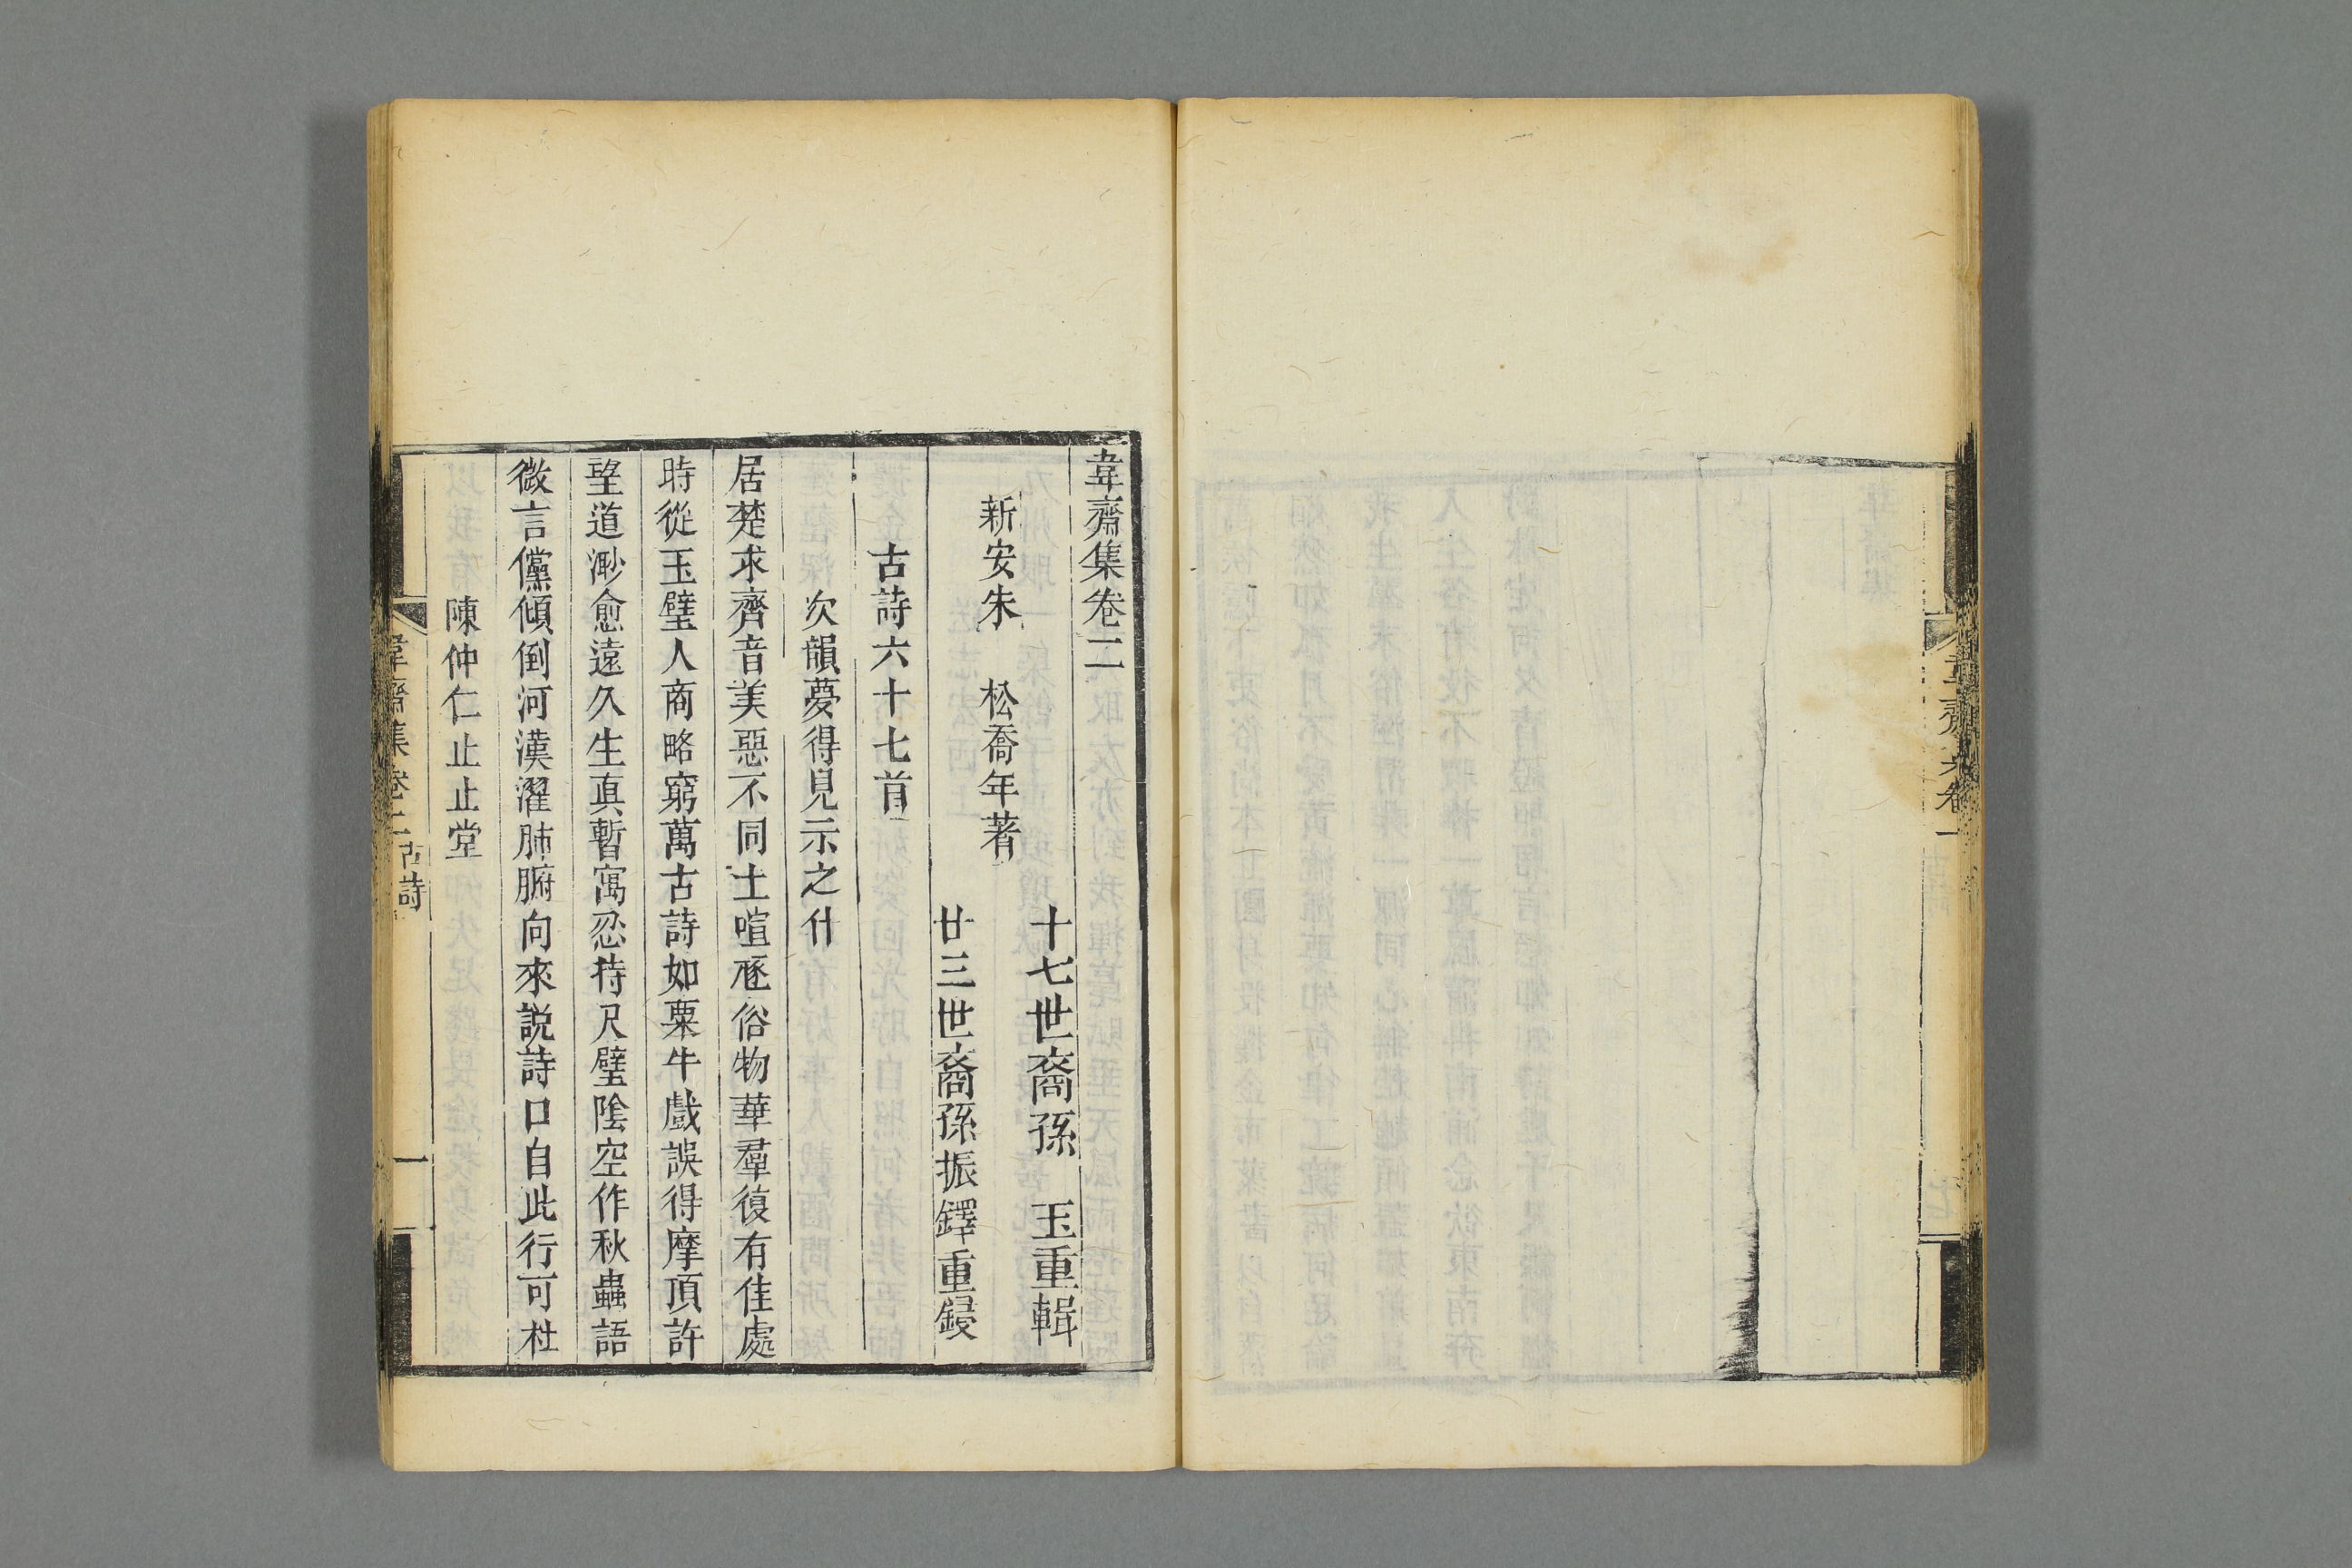 韋齋集卷二
十七世裔孫 玉重輯
新安朱 松喬年著
廿三世裔孫振鐸重鋟
古詩六十七首
次韻夢得見示之什
居楚求齊音美惡不同土喧啾俗物華羣復有佳處
時從玉璧人商略窮萬古詩如粟牛戲誤得摩頂許
望道渺愈遠久生真暫寓忍待尺璧陰空作秋蟲語
微言儻傾倒河漢濯肺腑向來説詩口自此行可杜
陳仲仁止止堂
韋齋集卷二 古詩 一